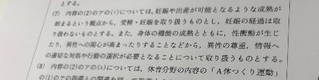 とする。
(7) 内容の(2)のアの(イ)については，妊娠や出産が可能となるような成熟が
始まるという観点から，受精・妊娠を取り扱うものとし，妊娠の経過は取
り扱わないものとする。また，身体の機能の成熟とともに，性衝動が生じ
たり，異性への関心が高まったりすることなどから，異性の尊重，情報へ
の適切な対処や行動の選択が必要となることについて取り扱うものとする。
については，体育分野の内容の「A体つくり運動」